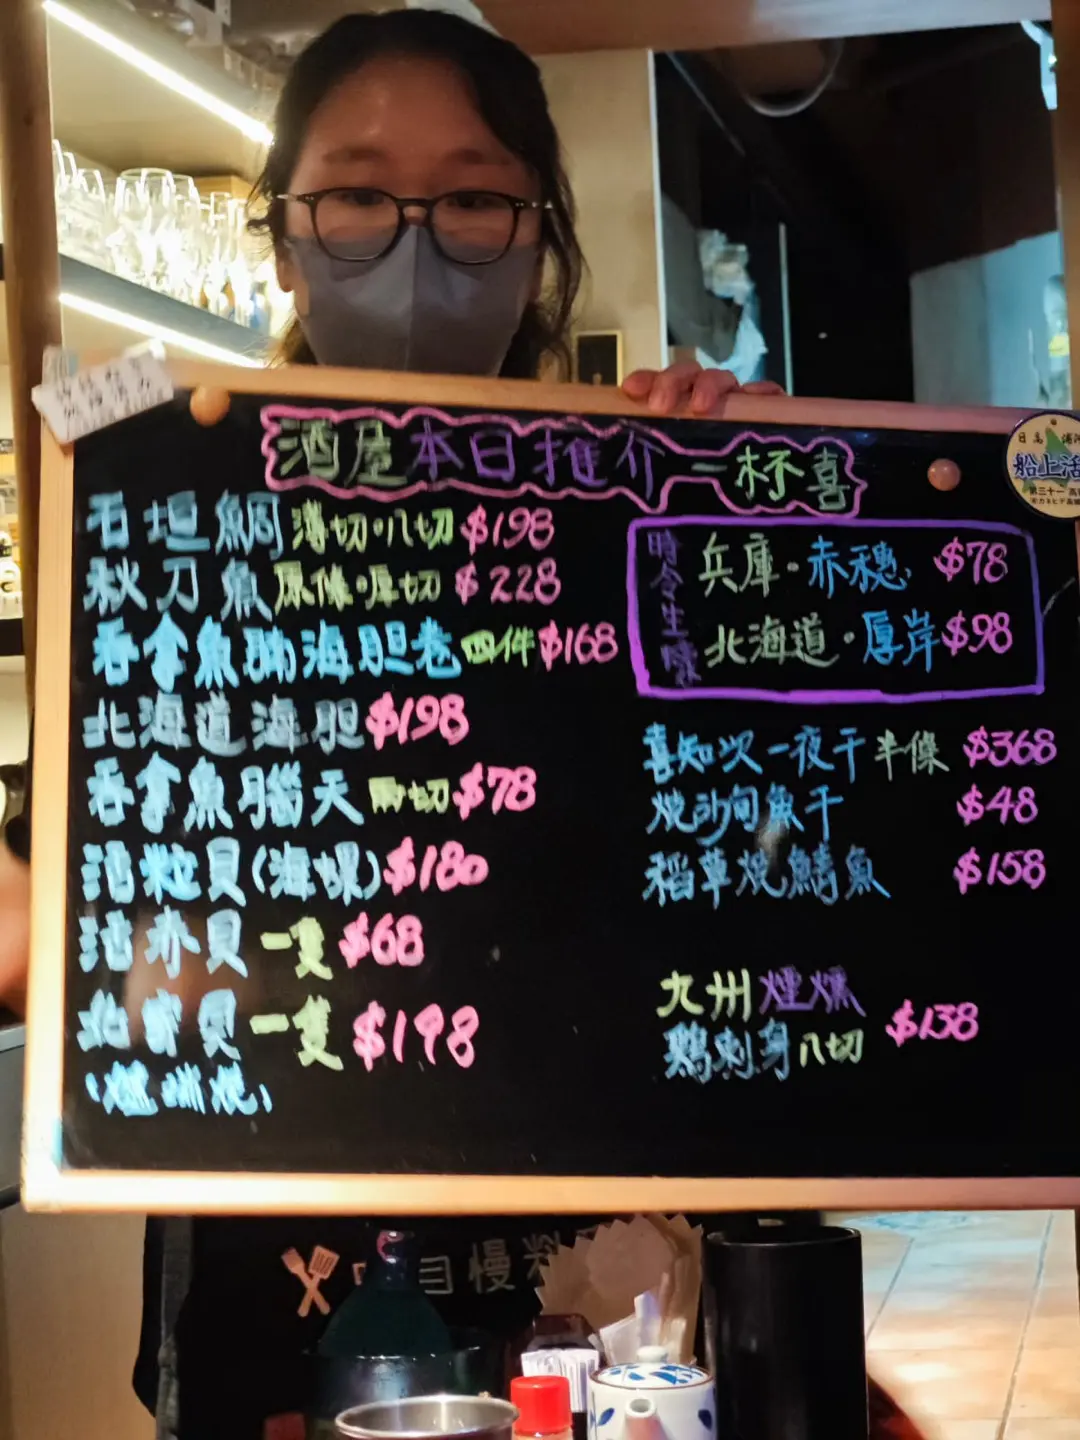 酒屋本日推介一杯喜
石垣鯛薄切・八切 $198
秋刀魚原條・厚切 $228
吞拿魚腩海胆卷四件 $168
北海道海胆 $198
吞拿魚腦天兩切 $78
活粒貝(海螺) $180
活赤貝一隻 $68
北寄貝一隻 $198
時令生蠔
兵庫・赤穗 $78
北海道・厚岸 $98
喜知次一夜干半條 $368
燒沙甸魚干 $48
稻草燒鯖魚 $158
九州煙燻
鷄刺身八切 $138
日高
船上活
第三十一
自慢料